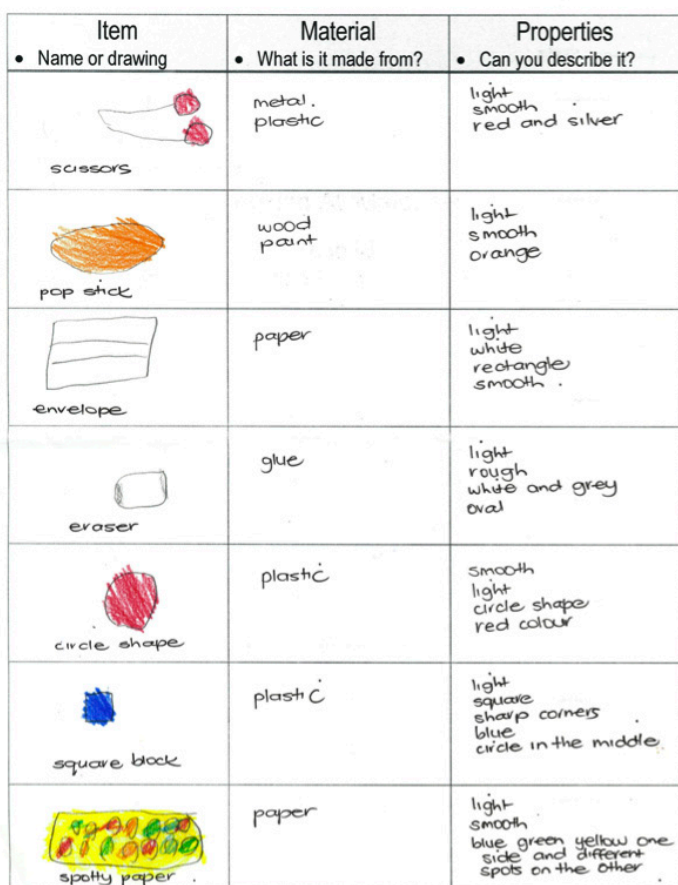 Item
• Name or drawing
Material
• What is it made from?
Properties
• Can you describe it?
scissors
metal.
plastic
light
smooth
red and silver
pop stick
wood
paint
light
smooth
orange
envelope
paper
light
white
rectangle
smooth.
eraser
glue
light
rough
white and grey
oval
circle shape
plastic
smooth
light
circle shape
red colour
square block
plastic
light
square
sharp corners
blue
circle in the middle
spotty paper
paper
light
smooth
blue green yellow one
side and different
spots on the other